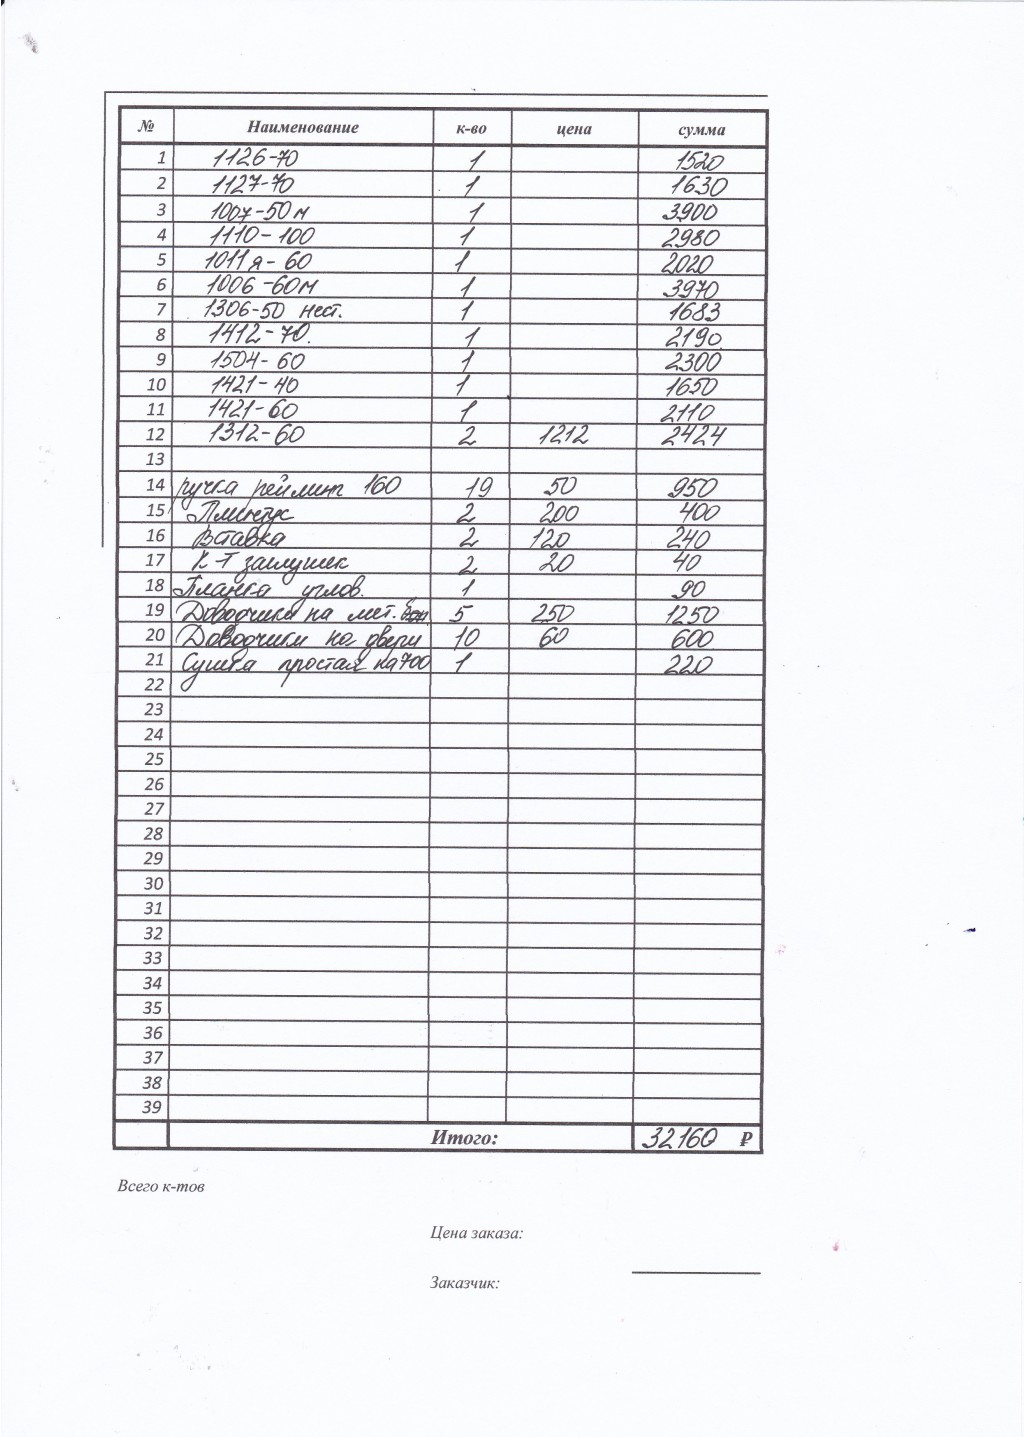 № Наименование к-во цена сумма
1 1126-70 1 1520
2 1127-70 1 1630
3 1007-50м 1 3900
4 1110-100 1 2980
5 1011я-60 1 2020
6 1006-60м 1 3970
7 1306-50 нест. 1 1683
8 1412-70. 1 2190
9 1504-60 1 2300
10 1421-40 1 1650
11 1421-60 1 2110
12 1312-60 2 1212 2424
13
14 ручка рейлинг 160 19 50 950
15 Плинтус 2 200 400
16 Вставка 2 120 240
17 К-Т заглушек 2 20 40
18 Планка углов. 1 90
19 Доводчики на мет. 5 250 1250
20 Доводчики на двери 10 60 600
21 Сушка простая на 700 1 220
22
23
24
25
26
27
28
29
30
31
32
33
34
35
36
37
38
39
Итого: 32160 ₽
Всего к-тов
Цена заказа:
Заказчик: